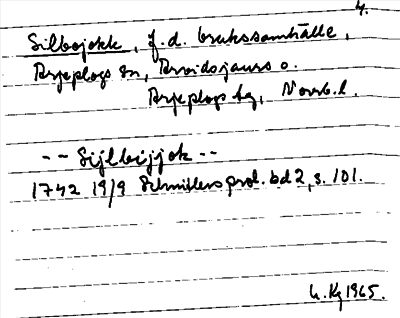 4.
Silbojokk, f.d. brukssamhälle,
Arjeplogs sn, Arvidsjaurs o.
Arjeplogs tg, Norrb.l.
-- Sijlbijjok --
1742 19/9 Schnitlers prot. bd 2, s. 101.
Kg 1965.